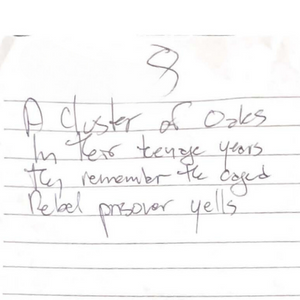 8
A Cluster of Oaks
In their teenage years
they remember the caged
Rebel prisoner yells